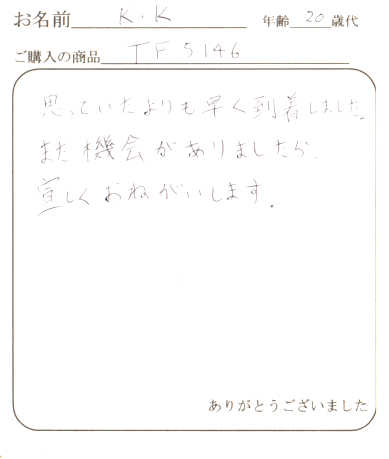 お名前 K.K 年齢 20 歳代
ご購入の商品 TF5146
思っていたよりも早く到着しました。
また機会がありましたら、
宜しくおねがいします。
ありがとうございました